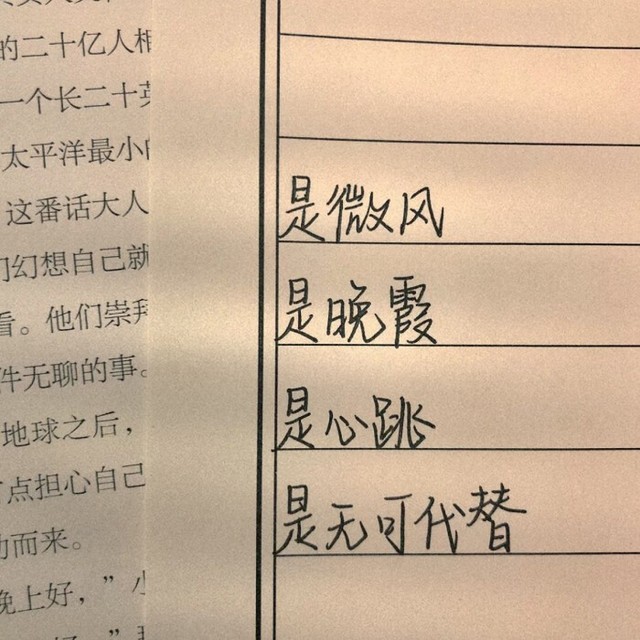 的二十亿人相
一个长二十英
太平洋最小的
这番话大人
们幻想自己就
看。他们崇拜
件无聊的事。
地球之后，
有点担心自己
动而来。
晚上好，”小
是微风
是晚霞
是心跳
是无可代替